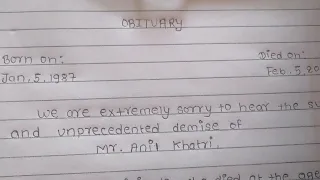 OBITUARY
Born on: Died on:
Jan, 5, 1987 Feb, 5, 20
We are extremely sorry to hear the su
and unprecedented demise of
Mr. Anil Khatri.
died at the age